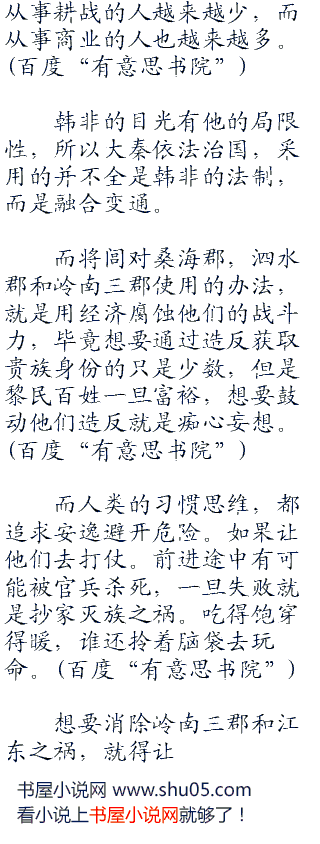 从事耕战的人越来越少，而
从事商业的人也越来越多。
(百度“有意思书院”)
韩非的目光有他的局限
性，所以大秦依法治国，采
用的并不全是韩非的法制，
而是融合变通。
而将闾对桑海郡，泗水
郡和岭南三郡使用的办法，
就是用经济腐蚀他们的战斗
力，毕竟想要通过造反获取
贵族身份的只是少数，但是
黎民百姓一旦富裕，想要鼓
动他们造反就是痴心妄想。
(百度“有意思书院”)
而人类的习惯思维，都
追求安逸避开危险。如果让
他们去打仗。前进途中有可
能被官兵杀死，一旦失败就
是抄家灭族之祸。吃得饱穿
得暖，谁还拎着脑袋去玩
命。(百度“有意思书院”)
想要消除岭南三郡和江
东之祸，就得让
书屋小说网 www.shu05.com
看小说上书屋小说网就够了！